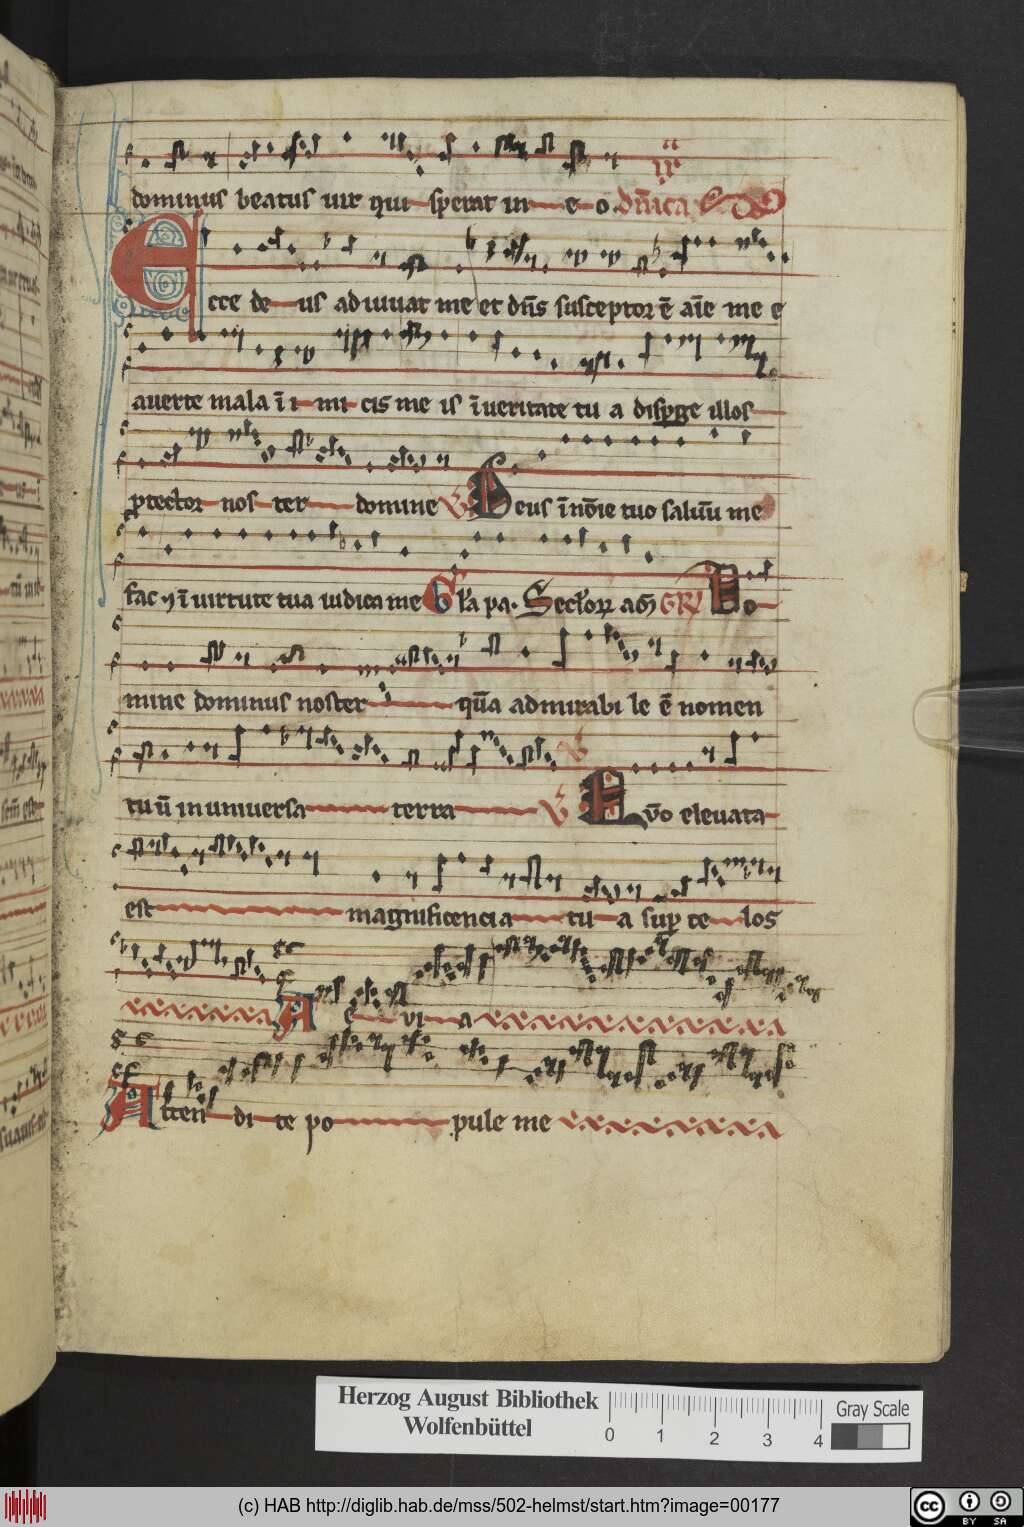 dominus beatus uir qui sperat in e o dn̄ica
Ecce de us adiuuat me et dn̄s susceptor ē aīe me e
auerte mala ī i mi cis me is ī ueritate tu a disp̱ge illos
ꝓtector nos ter domine V Deus ī nōīe tuo saluū me
fac ⁊ ī uirtute tua iudica me Gl'a pa. Sector̄ꝝ GR̄ Do
mine dominus noster qūa admirabi le ē nomen
tuū in uniuersa terra V Q̄uo eleuata
est magnificencia tu a suꝑ ce los
A e vi a
Atten di te po pule me
Herzog August Bibliothek
Wolfenbüttel
0 1 2 3 4
Gray Scale
(c) HAB http://diglib.hab.de/mss/502-helmst/start.htm?image=00177
cc BY SA